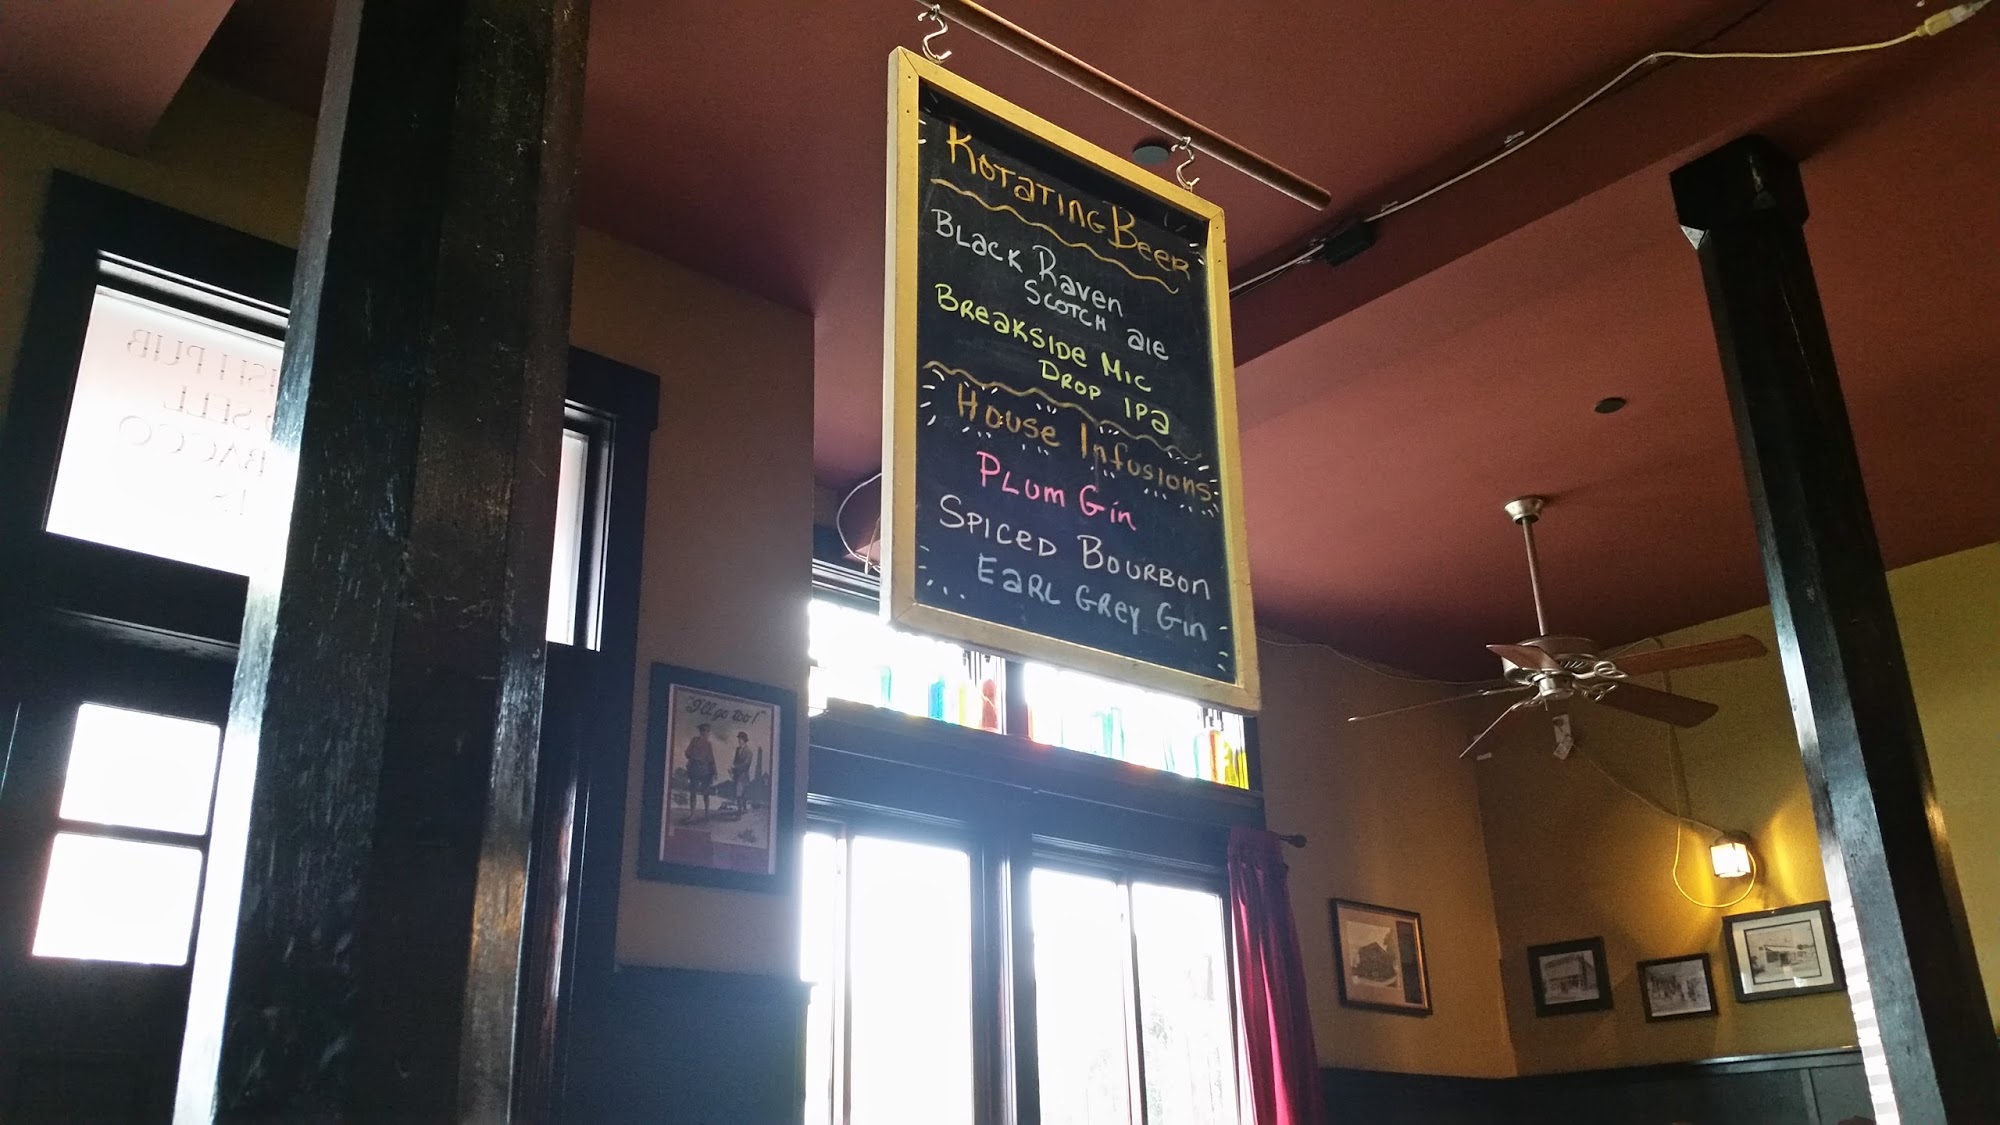 Rotating Beer
Black Raven
Scotch ale
Breakside Mic
Drop IPA
House Infusions
Plum Gin
Spiced Bourbon
Earl Grey Gin
"I'll go too!"
ISH PUB
SELL
BACCO